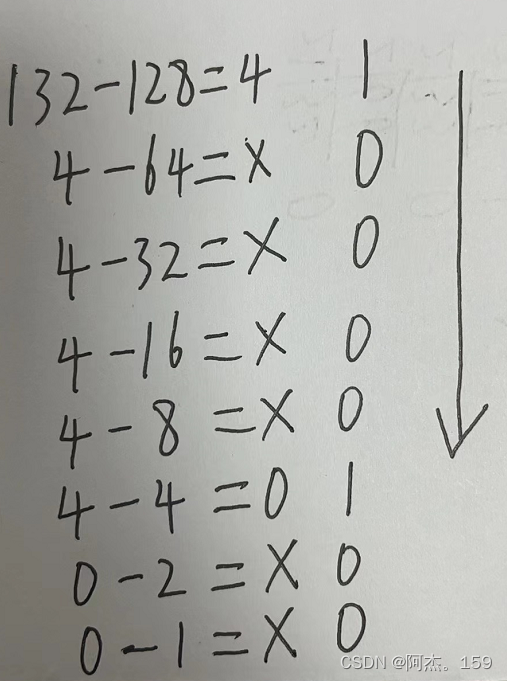 132-128=4 1
4-64=X 0
4-32=X 0
4-16=X 0
4-8=X 0
4-4=0 1
0-2=X 0
0-1=X 0
CSDN @阿杰。159